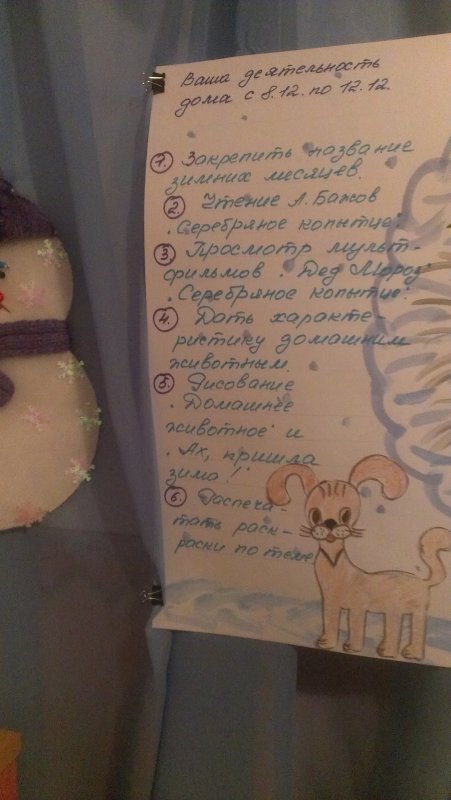 Ваша деятельность
дома с 8.12. по 12.12.
1. Закрепить название
зимних месяцев.
2. Чтение А. Бажов
"Серебряное копытце"
3. Просмотр мульт-
фильмов "Дед Мороз"
"Серебряное копытце".
4. Дать характе-
ристику домашним
животным.
5. Рисование
"Домашнее
животное" и
"Ах, пришла
зима!"
6. Распеча-
тать раск-
раски по теме